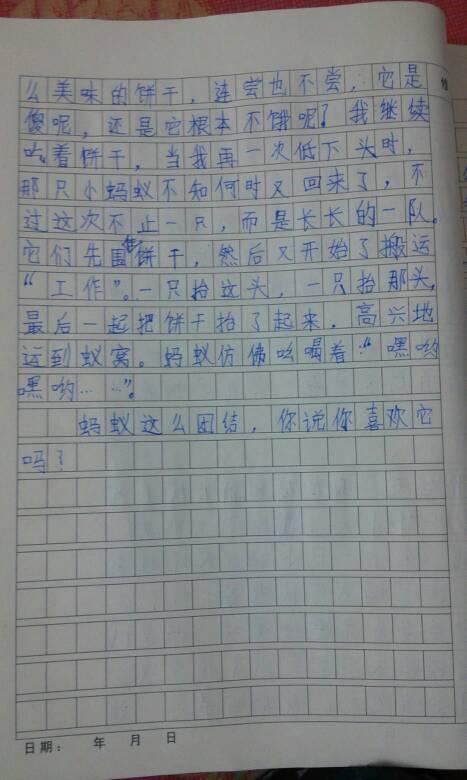 么美味的饼干，连尝也不尝，它是
傻呢，还是它根本不饿呢？我继续
吃着饼干，当我再一次低下头时，
那只小蚂蚁不知何时又回来了，不
过这次不止一只，而是长长的一队。
它们先围住饼干，然后又开始了搬运
“工作”。一只抬这头，一只抬那头，
最后一起把饼干抬了起来，高兴地
运到蚁窝。蚂蚁仿佛吆喝着：“嘿哟
嘿哟……”。
蚂蚁这么团结，你说你喜欢它
吗？
日期： 年 月 日